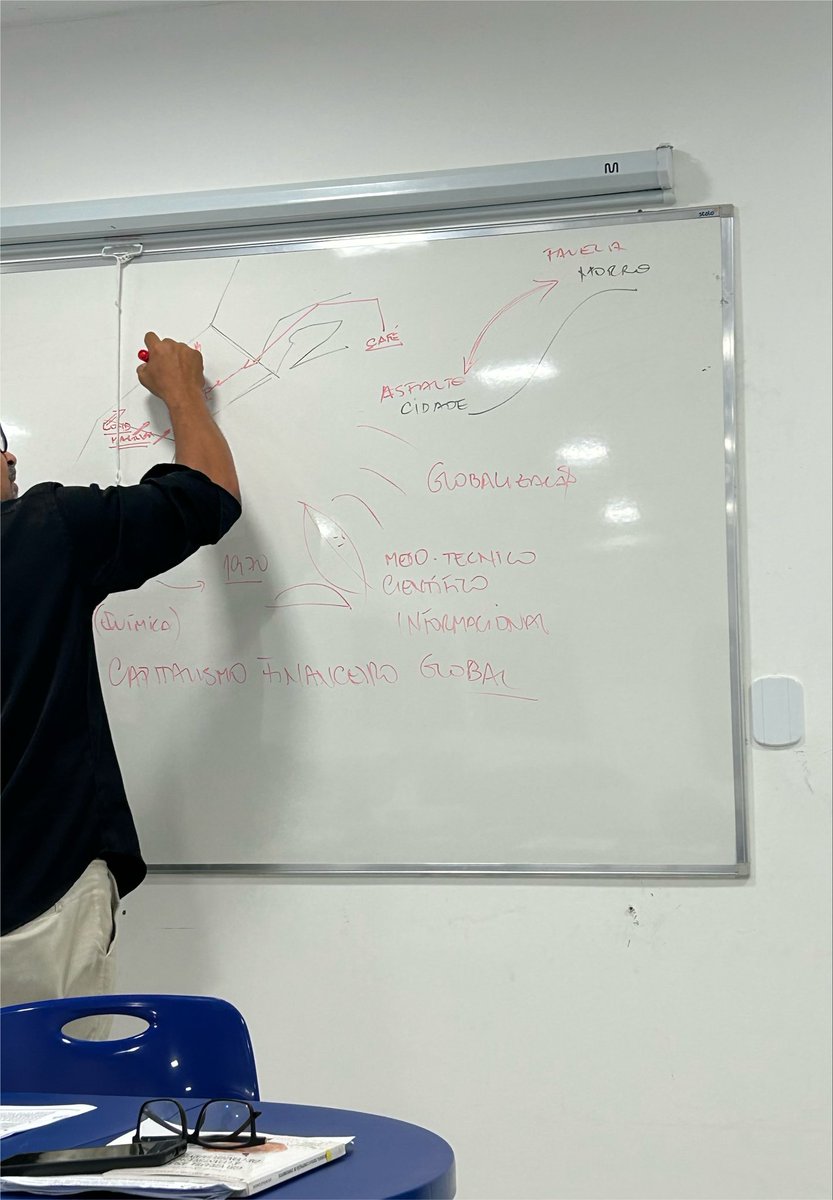 FAVELA
MORRO
CAFÉ
ASFALTO
CIDADE
GLOBALIZAÇÃO
1970
MEIO-TECNICO
CIENTÍFICO
INFORMACIONAL
(QUÍMICA)
CAPITALISMO FINANCEIRO GLOBAL